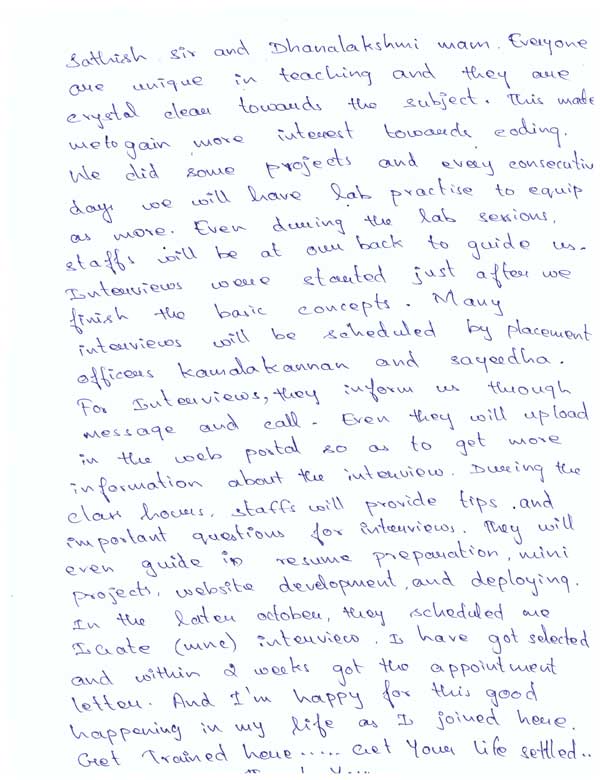 Sathish sir and Dhanalakshmi mam. Everyone
are unique in teaching and they are
crystal clear towards the subject. This made
me to gain more interest towards coding.
We did some projects and every consecutiv
days we will have lab practise to equip
as more. Even during the lab sessions,
staffs will be at our back to guide us.
Interviews were started just after we
finish the basic concepts. Many
interviews will be scheduled by placement
officers Kamalakannan and sayeedha.
For Interviews, they inform us through
message and call. Even they will upload
in the web portal so as to get more
information about the interview. During the
class hours, staffs will provide tips, and
important questions for interviews. They will
even guide in resume preparation, mini
projects, website development, and deploying.
In the later october, they scheduled me
IGate (MNC) interview. I have got selected
and within 2 weeks got the appointment
letter. And I'm happy for this good
happening in my life as I joined here.
Get Trained here..... Get Your life settled..